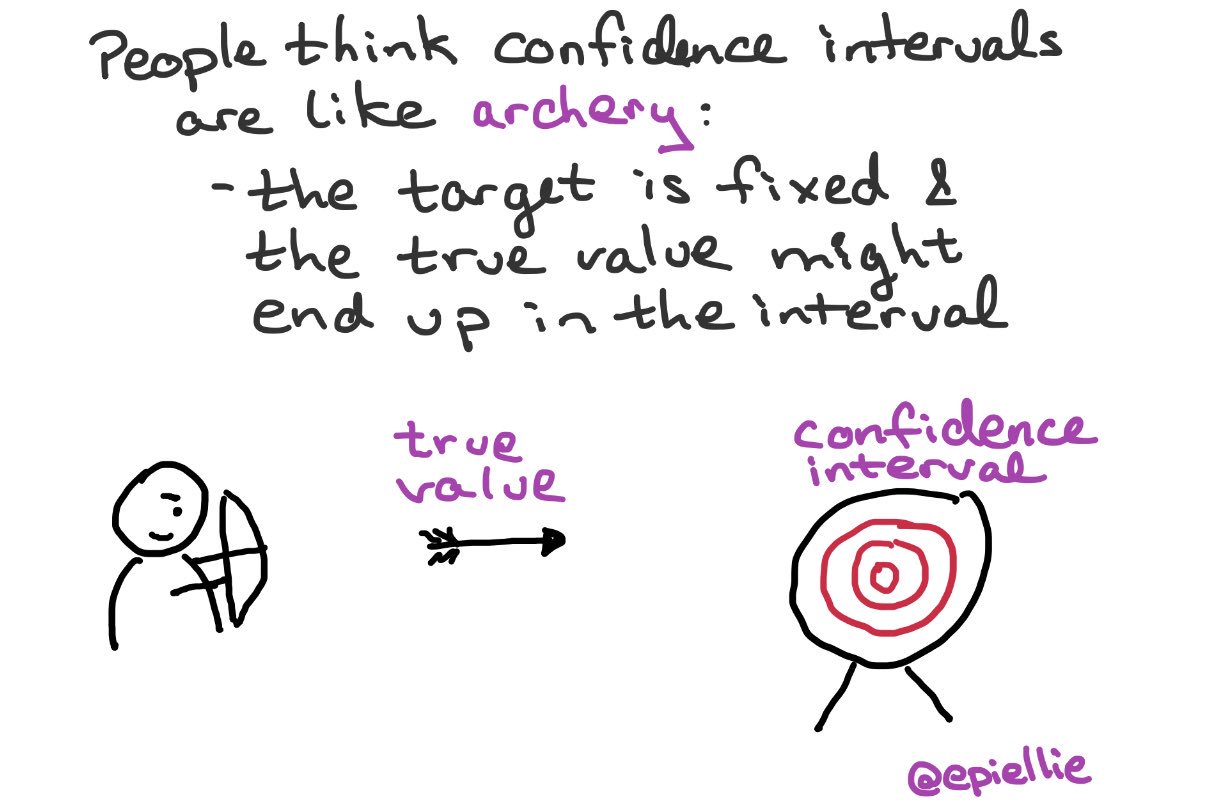 People think confidence intervals
are like archery:
- the target is fixed &
the true value might
end up in the interval
true
value
confidence
interval
@epiellie